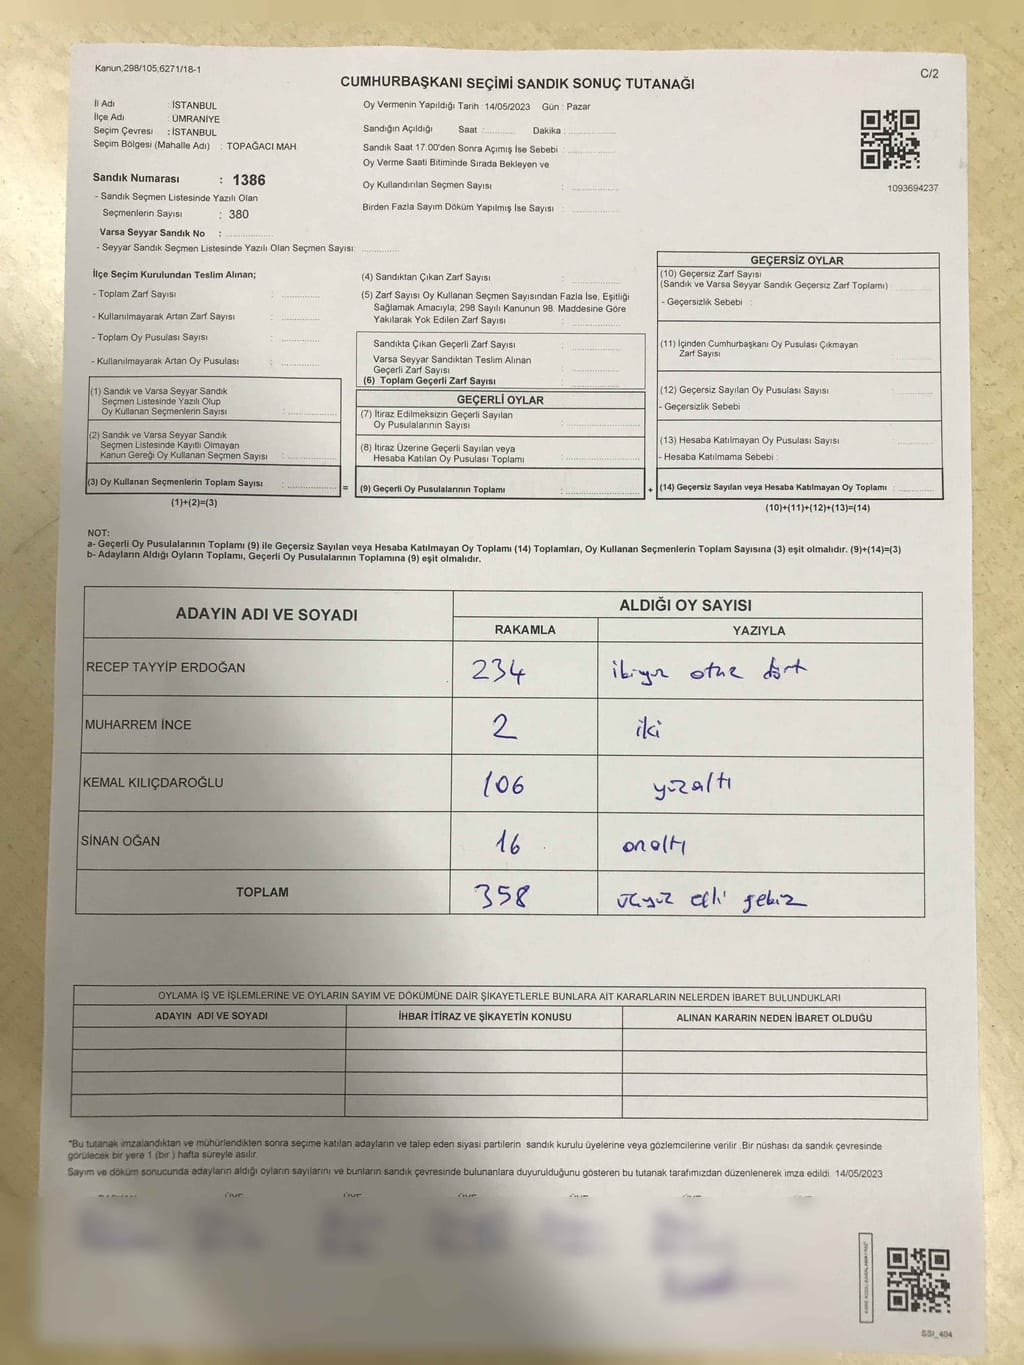 Kanun,298/105,6271/18-1
C/2
CUMHURBAŞKANI SEÇİMİ SANDIK SONUÇ TUTANAĞI
İl Adı : İSTANBUL
İlçe Adı : ÜMRANİYE
Seçim Çevresi : İSTANBUL
Seçim Bölgesi (Mahalle Adı) : TOPAĞACI MAH
Sandık Numarası : 1386
- Sandık Seçmen Listesinde Yazılı Olan
Seçmenlerin Sayısı : 380
Varsa Seyyar Sandık No :
- Seyyar Sandık Seçmen Listesinde Yazılı Olan Seçmen Sayısı:
Oy Vermenin Yapıldığı Tarih : 14/05/2023 Gün : Pazar
Sandığın Açıldığı Saat : Dakika :
Sandık Saat 17:00'den Sonra Açımış İse Sebebi :
Oy Verme Saati Bitiminde Sırada Bekleyen ve
Oy Kullandırılan Seçmen Sayısı :
Birden Fazla Sayım Döküm Yapılmış İse Sayısı :
1093694237
İlçe Seçim Kurulundan Teslim Alınan;
- Toplam Zarf Sayısı :
- Kullanılmayarak Artan Zarf Sayısı :
- Toplam Oy Pusulası Sayısı :
- Kullanılmayarak Artan Oy Pusulası :
(1) Sandık ve Varsa Seyyar Sandık
Seçmen Listesinde Yazılı Olup
Oy Kullanan Seçmenlerin Sayısı :
(2) Sandık ve Varsa Seyyar Sandık
Seçmen Listesinde Kayıtlı Olmayan
Kanun Gereği Oy Kullanan Seçmen Sayısı :
(3) Oy Kullanan Seçmenlerin Toplam Sayısı :
(1)+(2)=(3)
=
(4) Sandıktan Çıkan Zarf Sayısı :
(5) Zarf Sayısı Oy Kullanan Seçmen Sayısından Fazla İse, Eşitliği
Sağlamak Amacıyla; 298 Sayılı Kanunun 98. Maddesine Göre
Yakılarak Yok Edilen Zarf Sayısı :
Sandıkta Çıkan Geçerli Zarf Sayısı :
Varsa Seyyar Sandıktan Teslim Alınan
Geçerli Zarf Sayısı :
(6) Toplam Geçerli Zarf Sayısı :
GEÇERLİ OYLAR
(7) İtiraz Edilmeksizin Geçerli Sayılan
Oy Pusulalarının Sayısı :
(8) İtiraz Üzerine Geçerli Sayılan veya
Hesaba Katılan Oy Pusulası Toplamı :
(9) Geçerli Oy Pusulalarının Toplamı :
+
GEÇERSİZ OYLAR
(10) Geçersiz Zarf Sayısı
(Sandık ve Varsa Seyyar Sandık Geçersiz Zarf Toplamı) :
- Geçersizlik Sebebi :
(11) İçinden Cumhurbaşkanı Oy Pusulası Çıkmayan
Zarf Sayısı
(12) Geçersiz Sayılan Oy Pusulası Sayısı :
- Geçersizlik Sebebi :
(13) Hesaba Katılmayan Oy Pusulası Sayısı :
- Hesaba Katılmama Sebebi :
(14) Geçersiz Sayılan veya Hesaba Katılmayan Oy Toplamı :
(10)+(11)+(12)+(13)=(14)
NOT:
a- Geçerli Oy Pusulalarının Toplamı (9) ile Geçersiz Sayılan veya Hesaba Katılmayan Oy Toplamı (14) Toplamları, Oy Kullanan Seçmenlerin Toplam Sayısına (3) eşit olmalıdır. (9)+(14)=(3)
b- Adayların Aldığı Oyların Toplamı, Geçerli Oy Pusulalarının Toplamına (9) eşit olmalıdır.
ADAYIN ADI VE SOYADI ALDIĞI OY SAYISI
RAKAMLA YAZIYLA
RECEP TAYYİP ERDOĞAN 234 ikiyüz otuz dört
MUHARREM İNCE 2 iki
KEMAL KILIÇDAROĞLU 106 yüzaltı
SİNAN OĞAN 16 onaltı
TOPLAM 358 üçyüz elli sekiz
OYLAMA İŞ VE İŞLEMLERİNE VE OYLARIN SAYIM VE DÖKÜMÜNE DAİR ŞİKAYETLERLE BUNLARA AİT KARARLARIN NELERDEN İBARET BULUNDUKLARI
ADAYIN ADI VE SOYADI İHBAR İTİRAZ VE ŞİKAYETİN KONUSU ALINAN KARARIN NEDEN İBARET OLDUĞU
*Bu tutanak imzalandıktan ve mühürlendikten sonra seçime katılan adayların ve talep eden siyasi partilerin sandık kurulu üyelerine veya gözlemcilerine verilir .Bir nüshası da sandık çevresinde
görülecek bir yere 1 (bir ) hafta süreyle asılır.
Sayım ve döküm sonucunda adayların aldığı oyların sayılarını ve bunların sandık çevresinde bulunanlara duyurulduğunu gösteren bu tutanak tarafımızdan düzenlenerek imza edildi. 14/05/2023
SSI_404